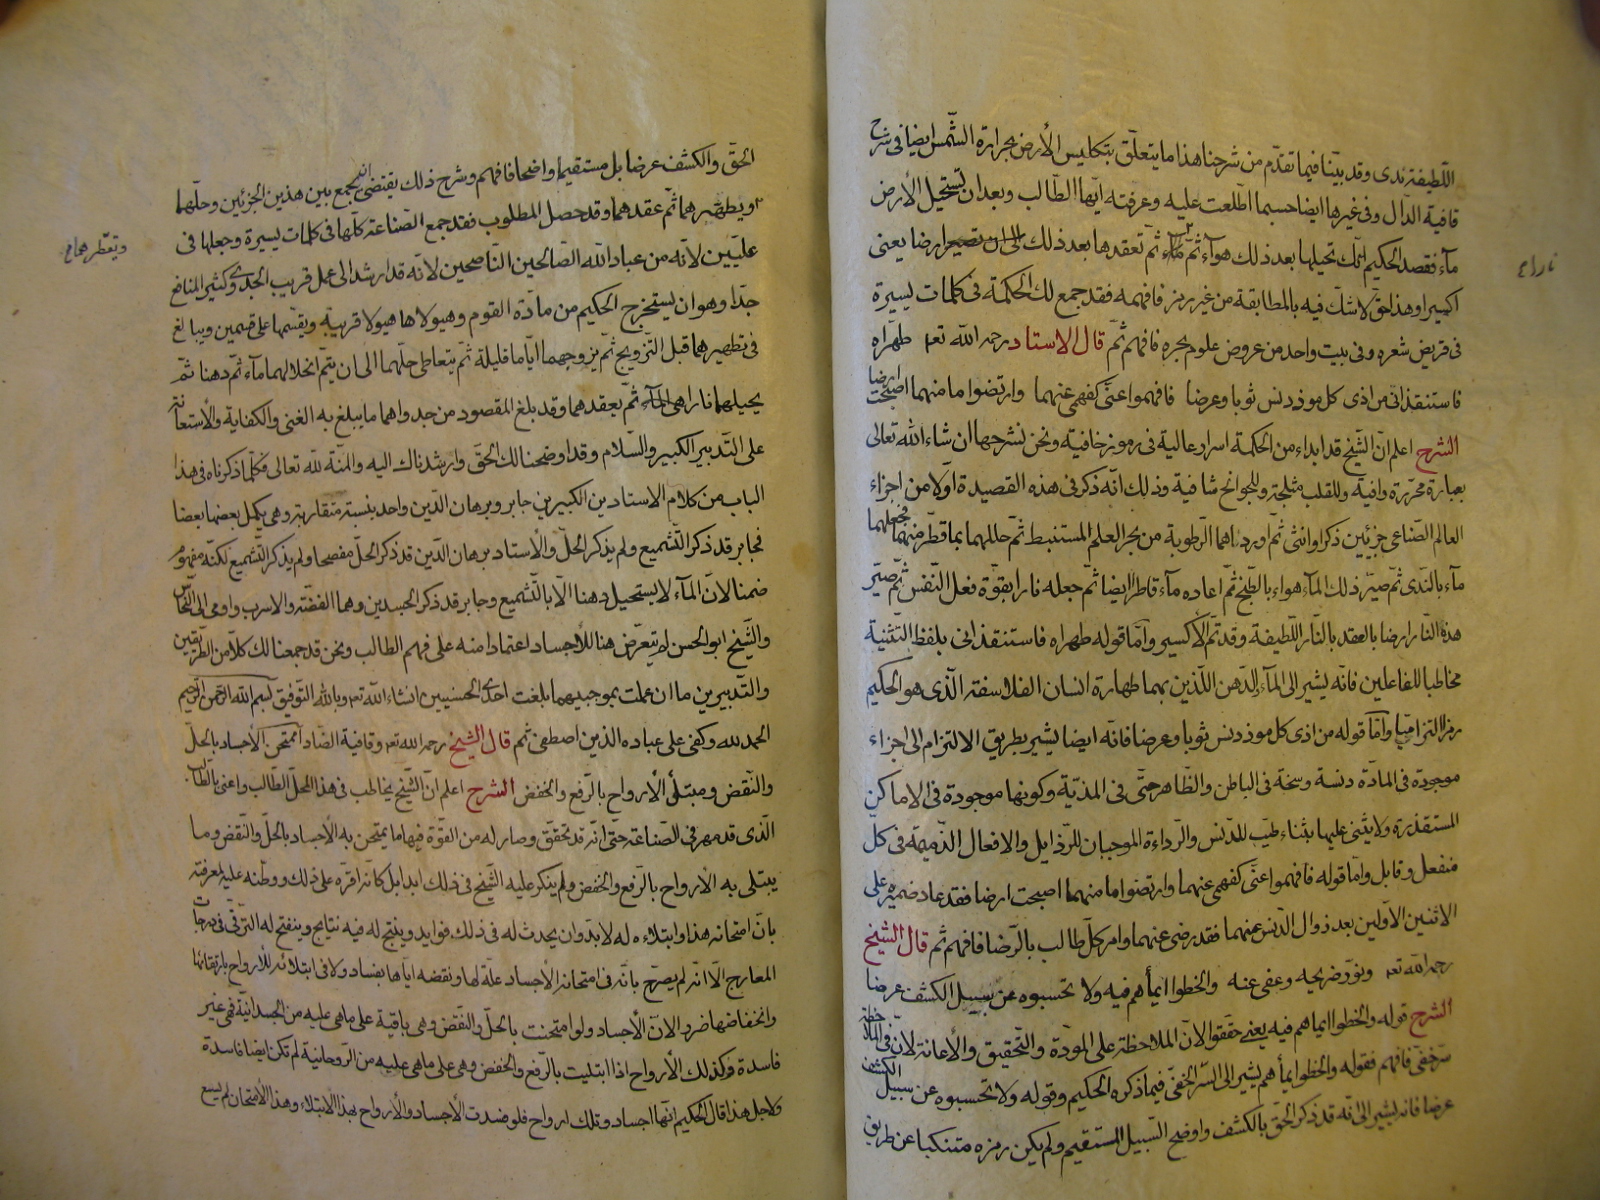 اللطيفة ندى وقد بيّنا فيما تقدّم من شرحنا هذا ما يتعلّق بتكليس الأرض بحرارة الشّمس ايضا فى شرح
قافية الدّال وفى غيرها ايضا حسبما اطّلعت عليه وعرفته ايّها الطّالب وبعد ان تستحيل الأرض
مآء فقصد الحكيم انّك تحيلها بعد ذلك هوآء ثمّ ثمّ تعقدها بعد ذلك ارضا يعنى
اكسيرا وهذا حقّ لا شكّ فيه بالمطابقة من غير رمز فافهمه فقد جمع لك الحكمة فى كلمات يسيرة
فى قريض شعره وفى بيت واحد من عروض علوم بحره فافهم ثمّ قال الاستاد رحمه الله تعه طهّراه
فاستنقذانى من اذى كل موذ دنس ثوبا وعرضا فافهموا عنّى كفهمى عنهما وارتضوا ما منهما اصبحت ارضا
الشرح اعلم انّ الشّيخ قد ابداء من الحكمة اسرار عالية فى رموز خافية ونحن نشرحها ان شاء الله تعالى
بعبارة محرّرة وافية وللقلب مثلجة وللجوانح شافية وذلك انّه ذكر فى هذه القصيدة اوّلا من اجزاء
العالم الصّناعى جزئين ذكرا وانثى ثم اوردهما الرّطوبة من بحر العلم المستنبط ثمّ حللهما بما قطّر منهما فجعلهما
مآء بالنّدى ثم صيّر ذلك المآء هواء بالطّبخ ثمّ اعاده مآء قاطرا ايضا ثمّ جعله نارا بقوّة فعل النّفس ثمّ صيّر
هذه النّار ارضا بالعقد بالنّار اللّطيفة وقد تمّ الأكسير وامّا قوله طهراه فاستنقذانى بلفظ التّثنية
مخاطبا للفاعلين فانّه يشير الى المآء والدهن اللّذين بهما طهارة انسان الفلاسفة الّذى هو الحكيم
رمزا التزاميّا وامّا قوله من اذى كل موذ دنس ثوبا وعرضا فانّه ايضا يشير بطريق الالتزام الى اجزاء
موجودة فى المادّة دنسة وسخة فى الباطن والظّاهر حتّى فى المذيّة وكونها موجودة فى الاماكن
المستقذرة ولا يثنى عليها بثناء طيّب للدّنس والرّداءة الموجبان للرّذايل والافعال الذّميمة فى كل
منفعل وقابل وامّا قوله فافهموا عنّى كفهمى عنهما وارتضوا ما منهما اصبحت ارضا فقد عاد ضميره على
الاثنين الاوّلين بعد ذوال الدّنس عنهما فقد رضى عنهما وامر كلّ طالب بالرّضا فافهم ثم قال الشيخ
رحمه الله تعه ونوّر ضريحه وعفى عنه والحظوا ايمآهم فيه ولا تحسبوه عن سبيل الكشف عرضا
الشرح قوله والحظوا ايماهم فيه يعنى حققوا لانّ الملاحظة على المودّة والتّحقيق والأعانة لانّ فى الملاحظة
سرّ خفى فافهم فقوله والحظوا ايمآهم يشير الى السّر الخفىّ فيما ذكره الحكيم وقوله ولا تحسبوه عن سبيل الكشف
عرضا فانه يشير الى انّه قد ذكر الحقّ بالكشف واوضح السّبيل المستقيم ولم يكن رمزه متنكبا عن طريق
نارا ح
الحقّ والكشف عرضا بل مستقيما واضحا فافهم وشرح ذلك يقتضى انّه يجمع بين هذين الجزئين وحلّهما
وتطهيرهما ثمّ عقدهما وقد حصل المطلوب فقد جمع الصّناعة كلّها فى كلمات يسيرة وجعلها فى
علّيّين لانّه من عباد الله الصّالحين النّاصحين لانّه قد ارشد الى عمل قريب الجدّ وكثير المنافع
جدّا وهو ان يستخرج الحكيم من مادّة القوم وهيولاها هيولا قريبة ويقسّمها على قسمين ويبالغ
فى تطهيرهما قبل التّزويج ثم يزوجهما ايّاما قليلة ثمّ يتعاطى حلّهما الى ان يتمّ انحلالهما مآء ثمّ دهنا ثمّ
يحيلهما نارا ثم يعقدهما وقد بلغ المقصود من جدواهما ما يبلغ به الغنى والكفاية والأستعانة
على التّدبير الكبير والسّلام وقد اوضحنا لك الحقّ وارشدناك اليه والمنة لله تعالى فكلّما ذكرناه فى هذا
الباب من كلام الاستادين الكبيرين جابر وبرهان الدّين واحد بنسبة متقاربة وهى يكمل بعضها بعضا
فجابر قد ذكر التّشميع ولم يذكر الحلّ والأستاد برهان الدّين قد ذكر الحلّ مفصحا ولم يذكر التّشميع لكنّه مفهوم
ضمنا لانّ المآء لا يستحيل دهنا الّا بالتّشميع وجابر قد ذكر الجسدين وهما الفضّة والاسرب واومى الى النّحاس
والشّيخ ابو الحسن لم يتعرّض هنا للأجساد اعتمادا منه على فهم الطالب ونحن قد جمعنا لك كلّا من الطّريقين
والتّدبيرين ما ان عملت بموجبهما بلغت احدى الحسنيين انشاء الله تعه وبالله التّوفيق بسم الله الرّحمن الرّحيم
الحمد لله وكفى على عباده الذين اصطفى ثم قال الشيخ رحمه الله تعه وقافية الضّاد أممتحن الأجساد بالحلّ
والنّقض ومبتلى الأرواح بالرّفع والخفض الشرح اعلم انّ الشّيخ يخاطب فى هذا المحلّ الطّالب واعنى بالطّالب
الّذى قد مهر فى الصّناعة حتّى انّه قد تحقّق وصار له من القوّة فيها ما يمتحن به الأجساد بالحلّ والنّقض وما
يبتلى به الأرواح بالرّفع والخفض ولم ينكر عليه الشّيخ فى ذلك ابدا بل كانّه اقرّه على ذلك ووطّنه عليه لمعرفته
بانّ امتحانه هذا وابتلاءه له لا بدّ وان يحدث له فى ذلك فوايد وينتج له فيه نتايج وينفتح له التّرقّى فى درجات
المعارج الّا انّه لم يصرّح بانّه فى امتحانه الأجساد علّة لها ونقضه ايّاها بفساد ولا فى ابتلائه للأرواح بارتقائها
وانخفاضها ضررا لانّ الأجساد ولو امتحنت بالحلّ والنّقض وهى باقية على ما هى عليه من الجسدانيّة فهى غير
فاسدة وكذلك الأرواح اذا ابتليت بالرّفع والخفض وهى على ما هى عليه من الرّوحانية لم تكن ايضا فاسدة
ولاجل هذا قال الحكيم انّها اجساد وتلك ارواح فلو فسدت الأجساد والأرواح بهذا الابتلاء وهذا الامتحان لم يسع
وتقطّرهما ح